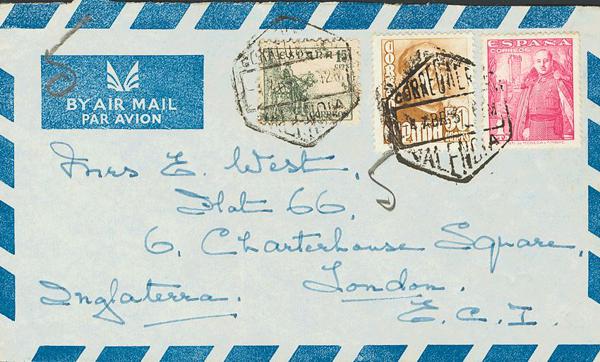 BY AIR MAIL
PAR AVION
ESPAÑA
CORREOS
CORREO AEREO
VALENCIA
VALENCIA
Mrs E. West,
Flat 66,
6, Charterhouse Square,
London.
Inglaterra.
E.C.I.